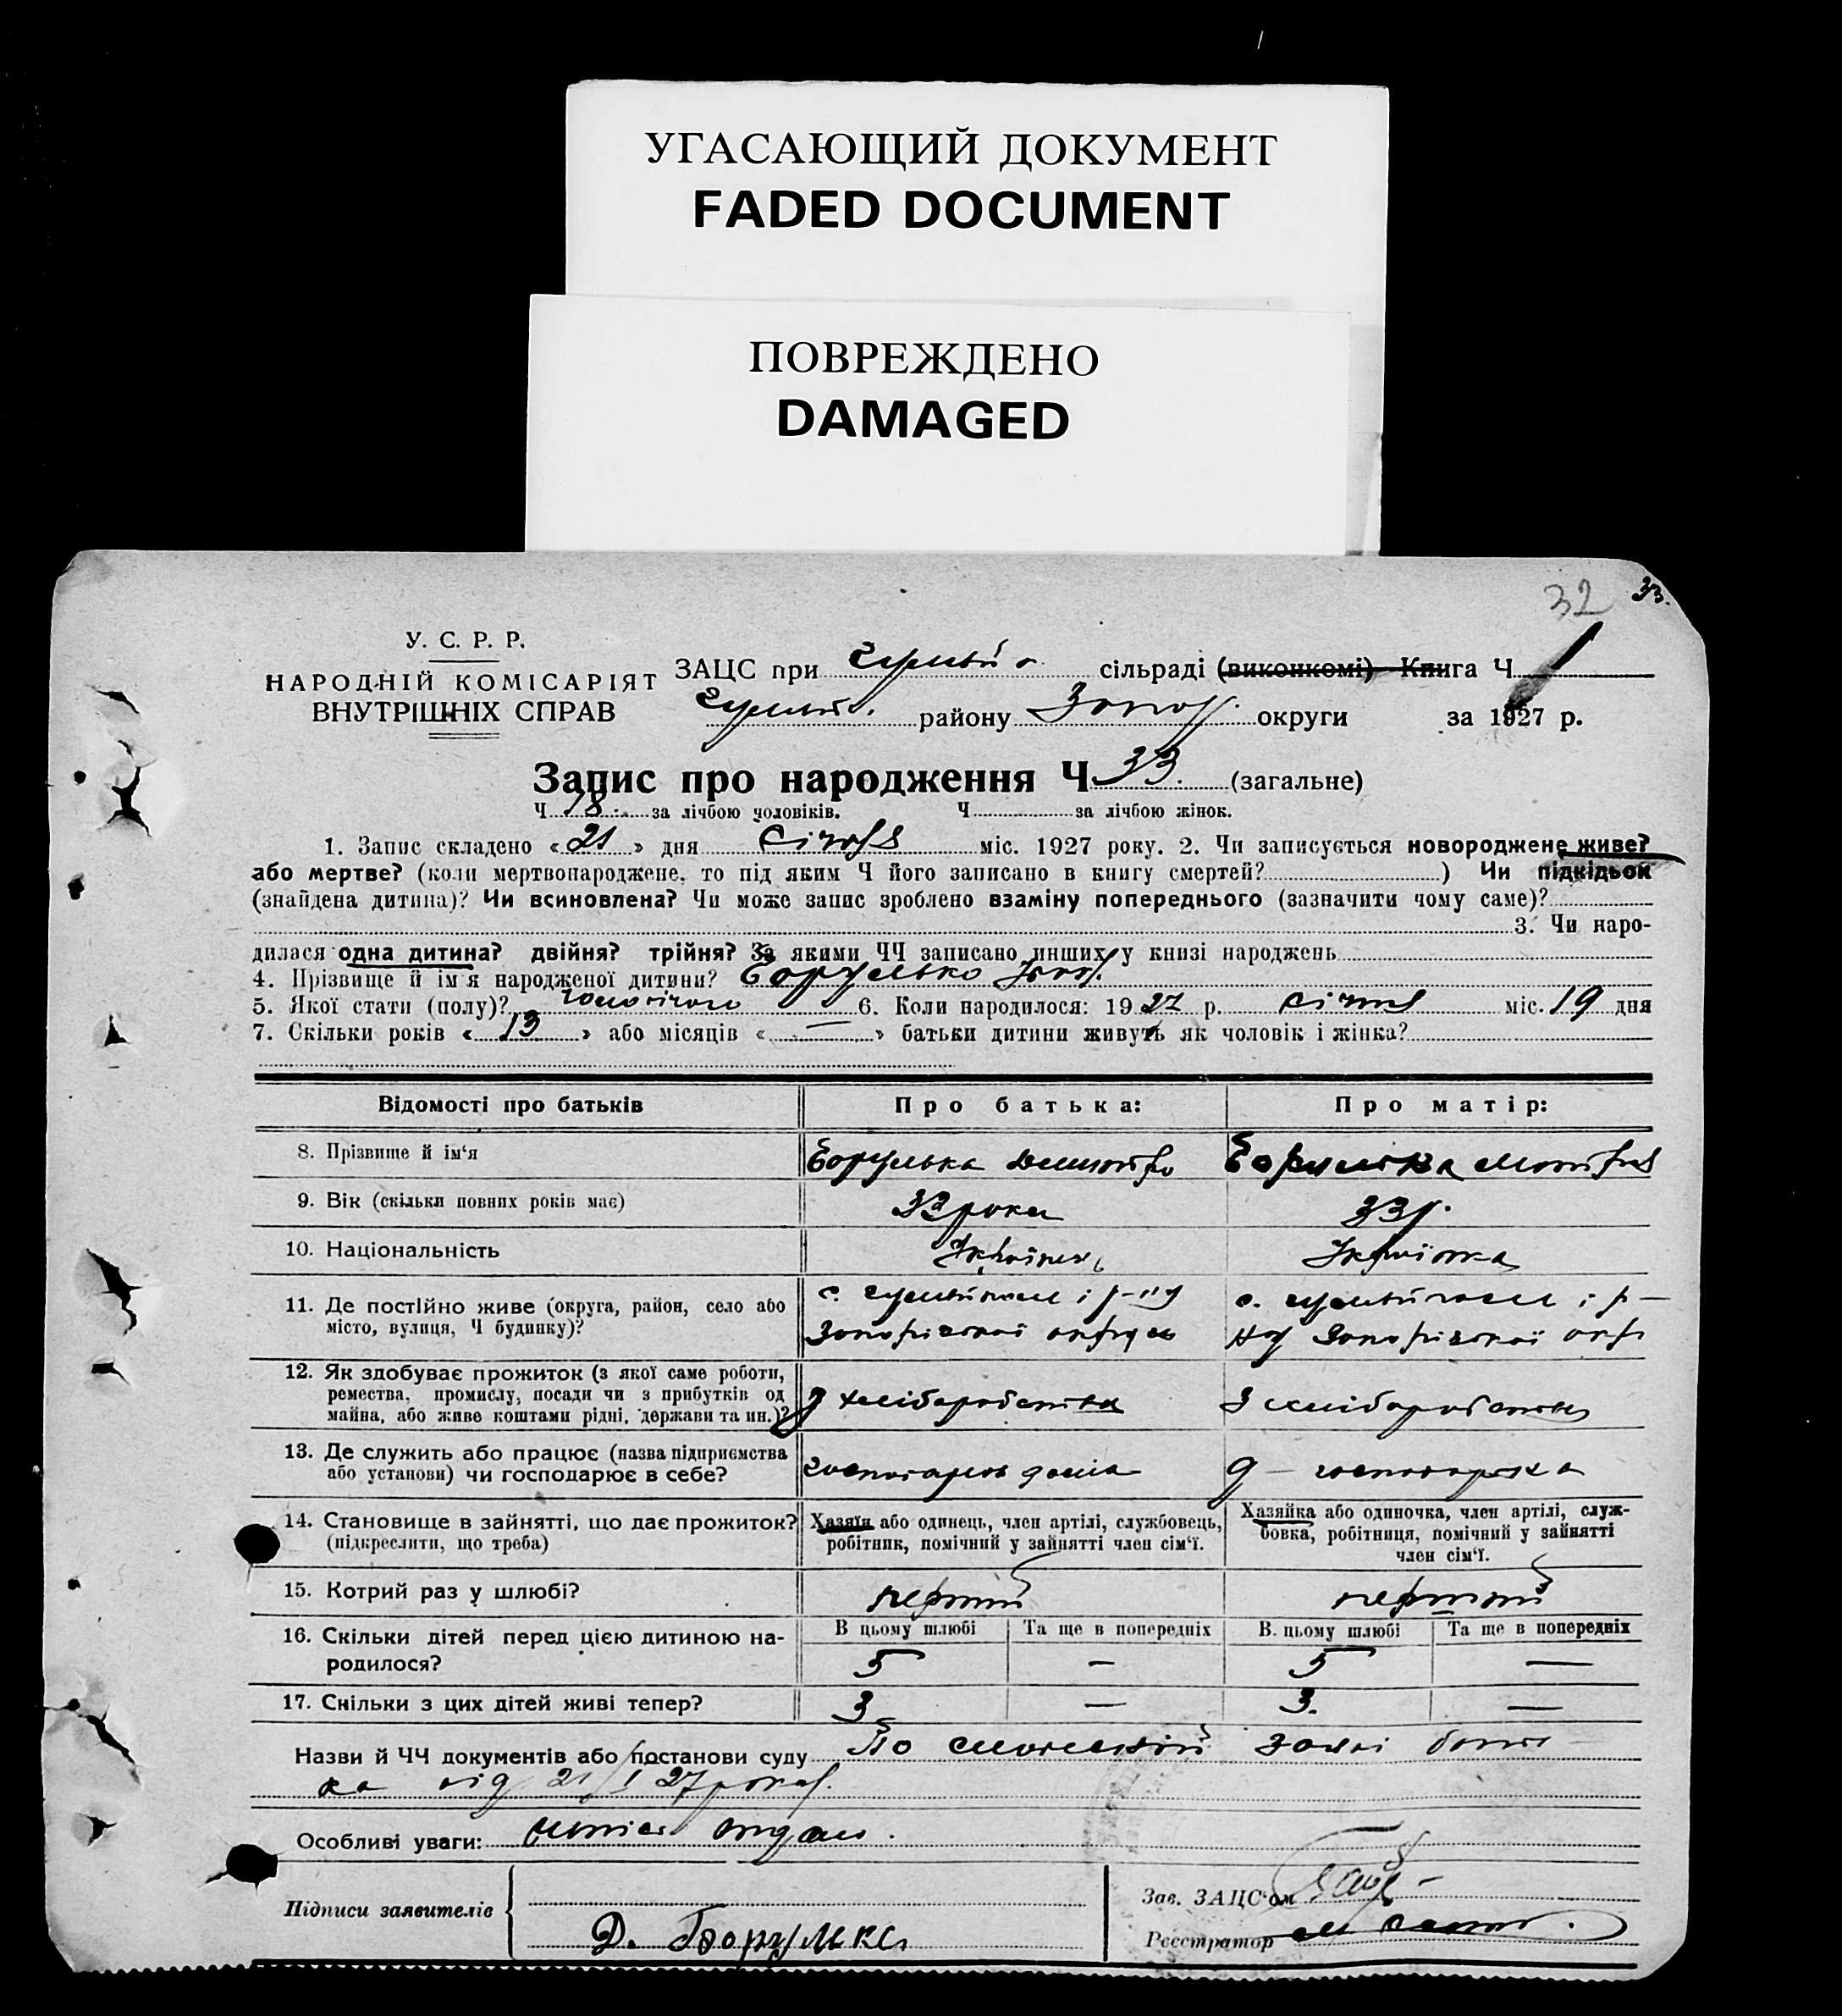 УГАСАЮЩИЙ ДОКУМЕНТ
FADED DOCUMENT
ПОВРЕЖДЕНО
DAMAGED
32 33.
У. С. Р. Р.
НАРОДНІЙ КОМІСАРІЯТ
ВНУТРІШНІХ СПРАВ
ЗАЦС при сільраді (виконкомі) Книга Ч 1
району Запор. округи за 1927 р.
Запис про народження Ч 33. (загальне)
Ч 18 за лічбою чоловіків. Ч за лічбою жінок.
1. Запис складено « 21 » дня січня міс. 1927 року. 2. Чи записується новороджене живе?
або мертве? (коли мертвонароджене, то під яким Ч його записано в книгу смертей? ) Чи підкідьок
(знайдена дитина)? Чи всиновлена? Чи може запис зроблено взаміну попереднього (зазначити чому саме)?
3. Чи наро-
дилася одна дитина? двійня? трійня? За якими ЧЧ записано инших у книзі народжень
4. Прізвище й ім'я народженої дитини?
5. Якої стати (полу)? чоловічого 6. Коли народилося: 1927 р. січня міс. 19 дня
7. Скільки років « 13 » або місяців « — » батьки дитини живуть як чоловік і жінка?
Відомості про батьків Про батька: Про матір:
8. Прізвище й ім'я Борулька Дмитро Борулька Мотря
9. Вік (скільки повних років має) 33 роки 33 р.
10. Національність Українець Українка
11. Де постійно живе (округа, район, село або
місто, вулиця, Ч будинку)? Запорізької округи Запорізької окр
12. Як здобуває прожиток (з якої саме роботи,
ремества, промислу, посади чи з прибутків од
майна, або живе коштами рідні, держави та ин.)? З хліборобства З хліборобства
13. Де служить або працює (назва підприємства
або установи) чи господарює в себе? господарює дома д — господарка
14. Становище в зайнятті, що дає прожиток?
(підкреслити, що треба)
Хазяїн або одинець, член артілі, службовець,
робітник, помічний у зайнятті член сім'ї.
Хазяйка або одиночка, член артілі, служ-
бовка, робітниця, помічний у зайнятті
член сім'ї.
15. Котрий раз у шлюбі? перший перший
16. Скільки дітей перед цією дитиною на-
родилося?
В цьому шлюбі Та ще в попередніх В. цьому шлюбі Та ще в попередніх
5 — 5 —
17. Скільки з цих дітей живі тепер? 3 — 3. —
Назви й ЧЧ документів або постанови суду По словесній заяві бать
ка від 21/I 27 року.
Особливі уваги:
Підписи заявителів
Д. Борулька
Зав. ЗАЦС'ом
Реєстратор